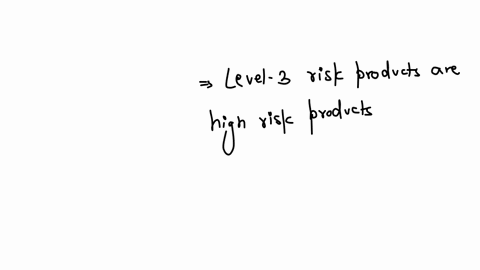 ⇒ Level-3 risk products are
high risk products